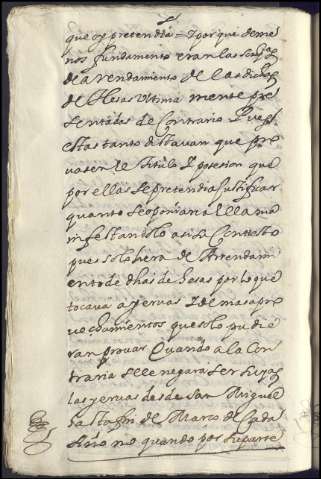 que oy pretendia = Y porque de me
nos fundamento eran las scrip.as
de arrendamiento de las dichas
de Hesas Ultima mente pre
sentadas de Contrario Pues
estas tanto distavan que pro
vasen el titulo Y posesion que
por ellas se pretendia Justificar
quanto se oponian a ella ma
nifestandolo asi su Contesto
pues solo hera de Arrendam
iento de dhas de hesas por lo que
tocava a yervas Y demas apro
vechamientos que solo pudie
ran provar Quando a la Con
traria se le negara ser suyas
las yervas desde san Miguel
hasta fin de Marzo de Cada
Año no quando por su parte